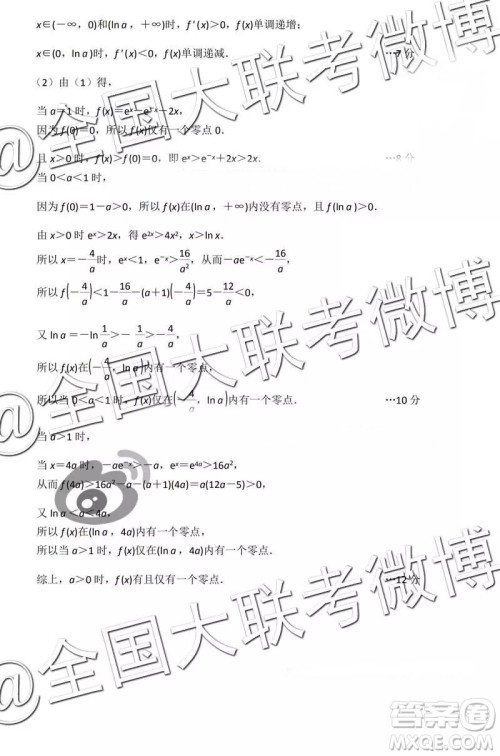 x∈(－∞，0)和(ln a，＋∞)时，f ′(x)＞0，f(x)单调递增；
x∈(0，ln a)时，f ′(x)＜0，f(x)单调递减． …7 分
（2）由（1）得，
当 a＝1 时，f(x)＝eˣ－e⁻ˣ－2x，
因为 f(0)＝0，所以 f(x)仅有一个零点 0．
且 x＞0 时，f(x)＞f(0)＝0，即 eˣ＞e⁻ˣ＋2x＞2x． …8 分
当 0＜a＜1 时，
因为 f(0)＝1－a＞0，所以 f(x)在(ln a，＋∞)内没有零点，且 f(ln a)＞0．
由 x＞0 时 eˣ＞2x，得 e²ˣ＞4x²，x＞ln x．
所以 x＝－4/a 时，eˣ＜1，e⁻ˣ＞16/a²，从而－ae⁻ˣ＜－16/a，
所以 f(－4/a)＜1－16/a－(a＋1)(－4/a)＝5－12/a＜0，
又 ln a＝－ln 1/a＞－1/a＞－4/a，
所以 f(x)在(－4/a，ln a)内有一个零点．
所以当 0＜a＜1 时，f(x)仅在(－4/a，ln a)内有一个零点． …10 分
当 a＞1 时，
当 x＝4a 时，－ae⁻ˣ＞－a，eˣ＝e⁴ᵃ＞16a²，
从而 f(4a)＞16a²－a－(a＋1)(4a)＝a(12a－5)＞0，
又 ln a＜a＜4a，
所以 f(x)在(ln a，4a)内有一个零点．
所以当 a＞1 时，f(x)在(ln a，4a)内有一个零点．
综上，a＞0 时，f(x)有且仅有一个零点． …12 分
@全国大联考微博
@全国大联考微博
@全国大联考微博
答案圈
MXQE.COM